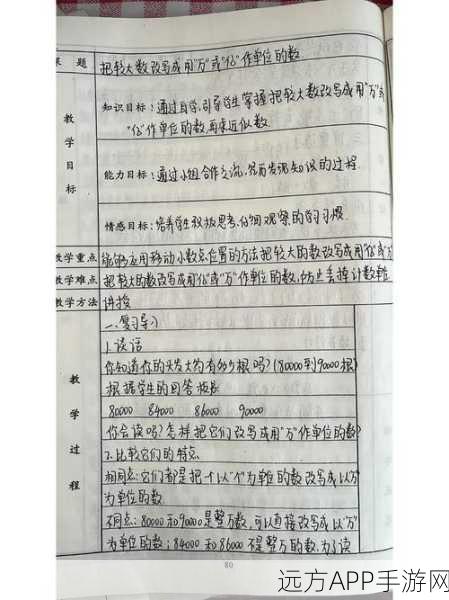 课 题 把较大数改写成用"万"或"亿"作单位的数
教学目标
知识目标:通过自学,引导学生掌握把较大数改写成用"万"或
"亿"作单位的数,再求近似数.
能力目标:通过小组合作交流,
发现知识的过程.
情感目标:培养学生积极思考,仔细观察的学习习惯.
教学重点 能够应用移动小数点位置的方法把较大的数改写成用"亿"或"万"
教学难点 把较大的数改写成用"亿"或"万"作单位的数,防止丢掉计数单位
教学方法 讲授
教学过程
一.复习导入
1.谈话
你知道你的头发大约有多少根吗?(80000到90000根)
根据学生的回答板书
80000 84000 86000 90000
你会读吗?怎样把它们改写成用"万"作单位的数?
2.比较它们的特点
相同点:它们都是把一个以"个"为单位的数改写成以"万"
为单位的数.
不同点:80000和90000是整万数,可以直接改写成以"万"
为单位的数;84000和86000不是整万的数,为了读
80
远方APP手游网